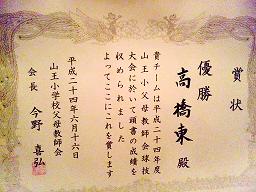 賞状
優勝
高橋東 殿
貴チームは平成二十四年度
山王小父母教師会球技
大会に於いて頭書の成績を
収められました
よってここにこれを賞します
平成二十四年六月十六日
山王小学校父母教師会
会長 今野喜弘